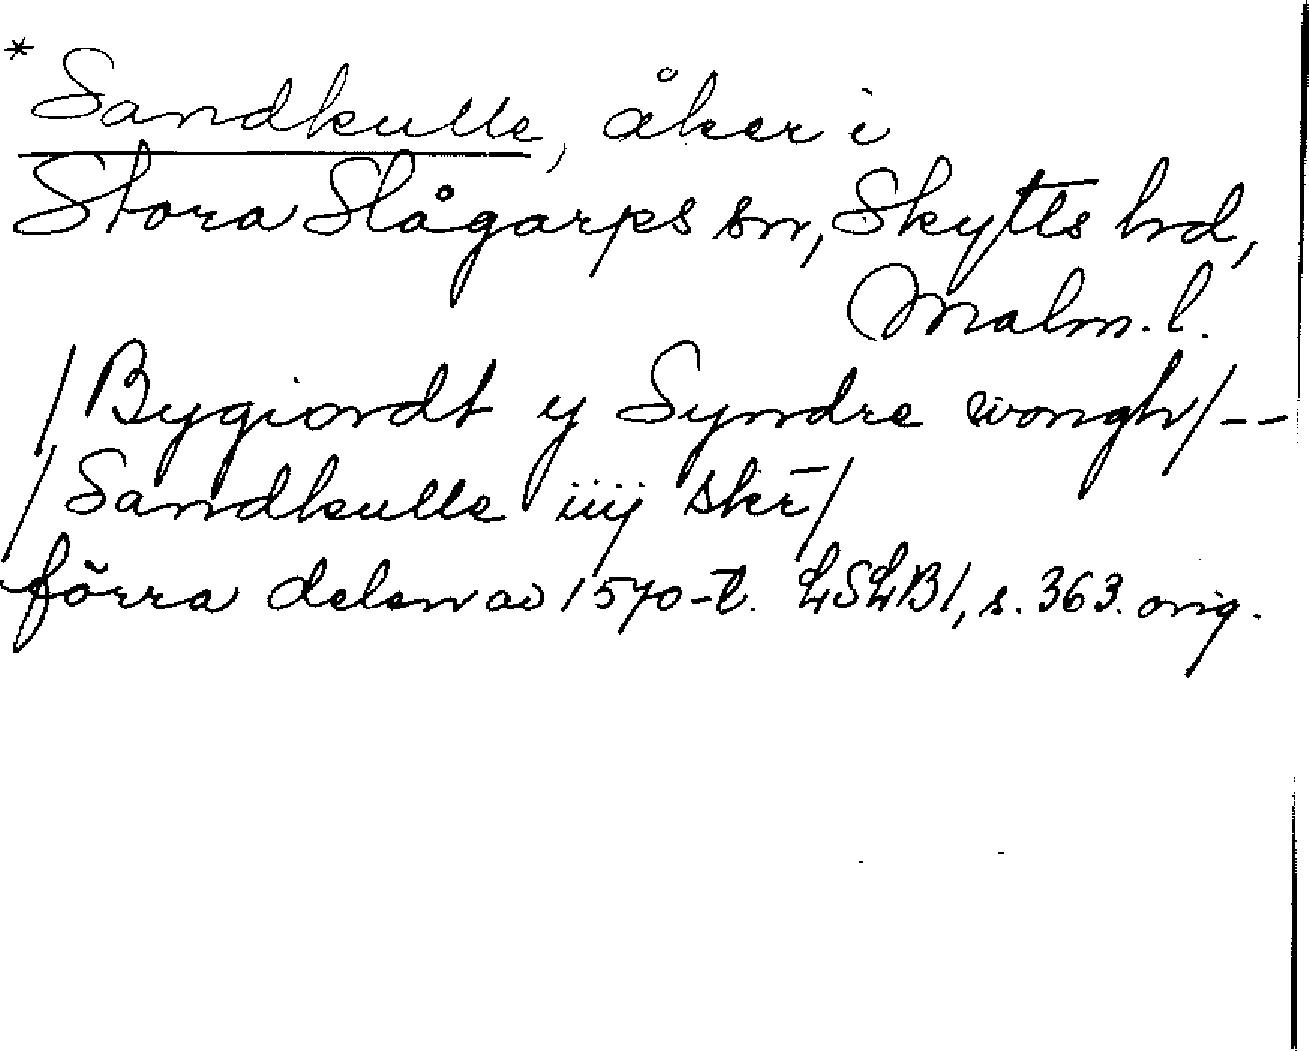 *Sandkulle, åker i
Stora Slågarps sn, Skytts hd,
Malm. l.
/Bygiordt y Syndre wongh/--
/Sandkulle iiij skr̄/
förra delen av 1570-t. LSLB1, s. 363. orig.